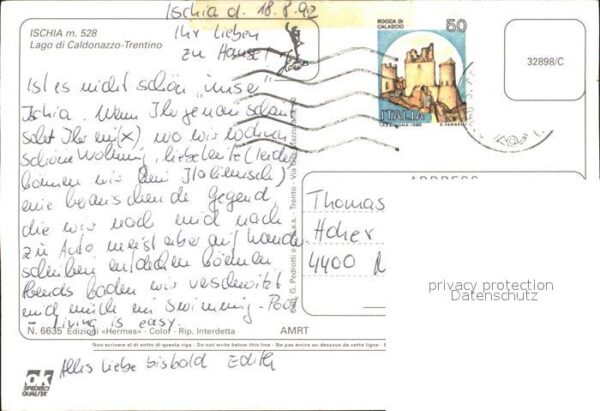 Ischia d. 18.8.92
ISCHIA m. 528
Lago di Caldonazzo-Trentino
Ihr Lieben
zu Hause!
Ist es nicht schön "unser"
Ischia. Wenn Ihr genau schaut
seht Ihr ein (x) wo wir wohnen
schöne Wohnung, liebe Leute (leider
können wir kein Italienisch)
eine berauschende Gegend,
die wir nach und nach
zu Auto meist aber auf Wander-
schuhen entdecken können
Abends baden wir verschwitzt
und müde im Swimming-Pool
- living is easy.
N. 6635 Edizioni «Hermes» - Color - Rip. Interdetta
AMRT
Non scrivere al di sotto di questa riga - Do not write below this line - Ne pas écrire au dessous de cette ligne -
Alles Liebe bisbald Edith
ok
SPEDIRECI
QUALITA'
G. Pedrotti
s.a.s. - Trento - Via
ROCCA DI
CALASCIO
50
ITALIA
32898/C
ADDRESS
Thomas
4400
privacy protection
Datenschutz